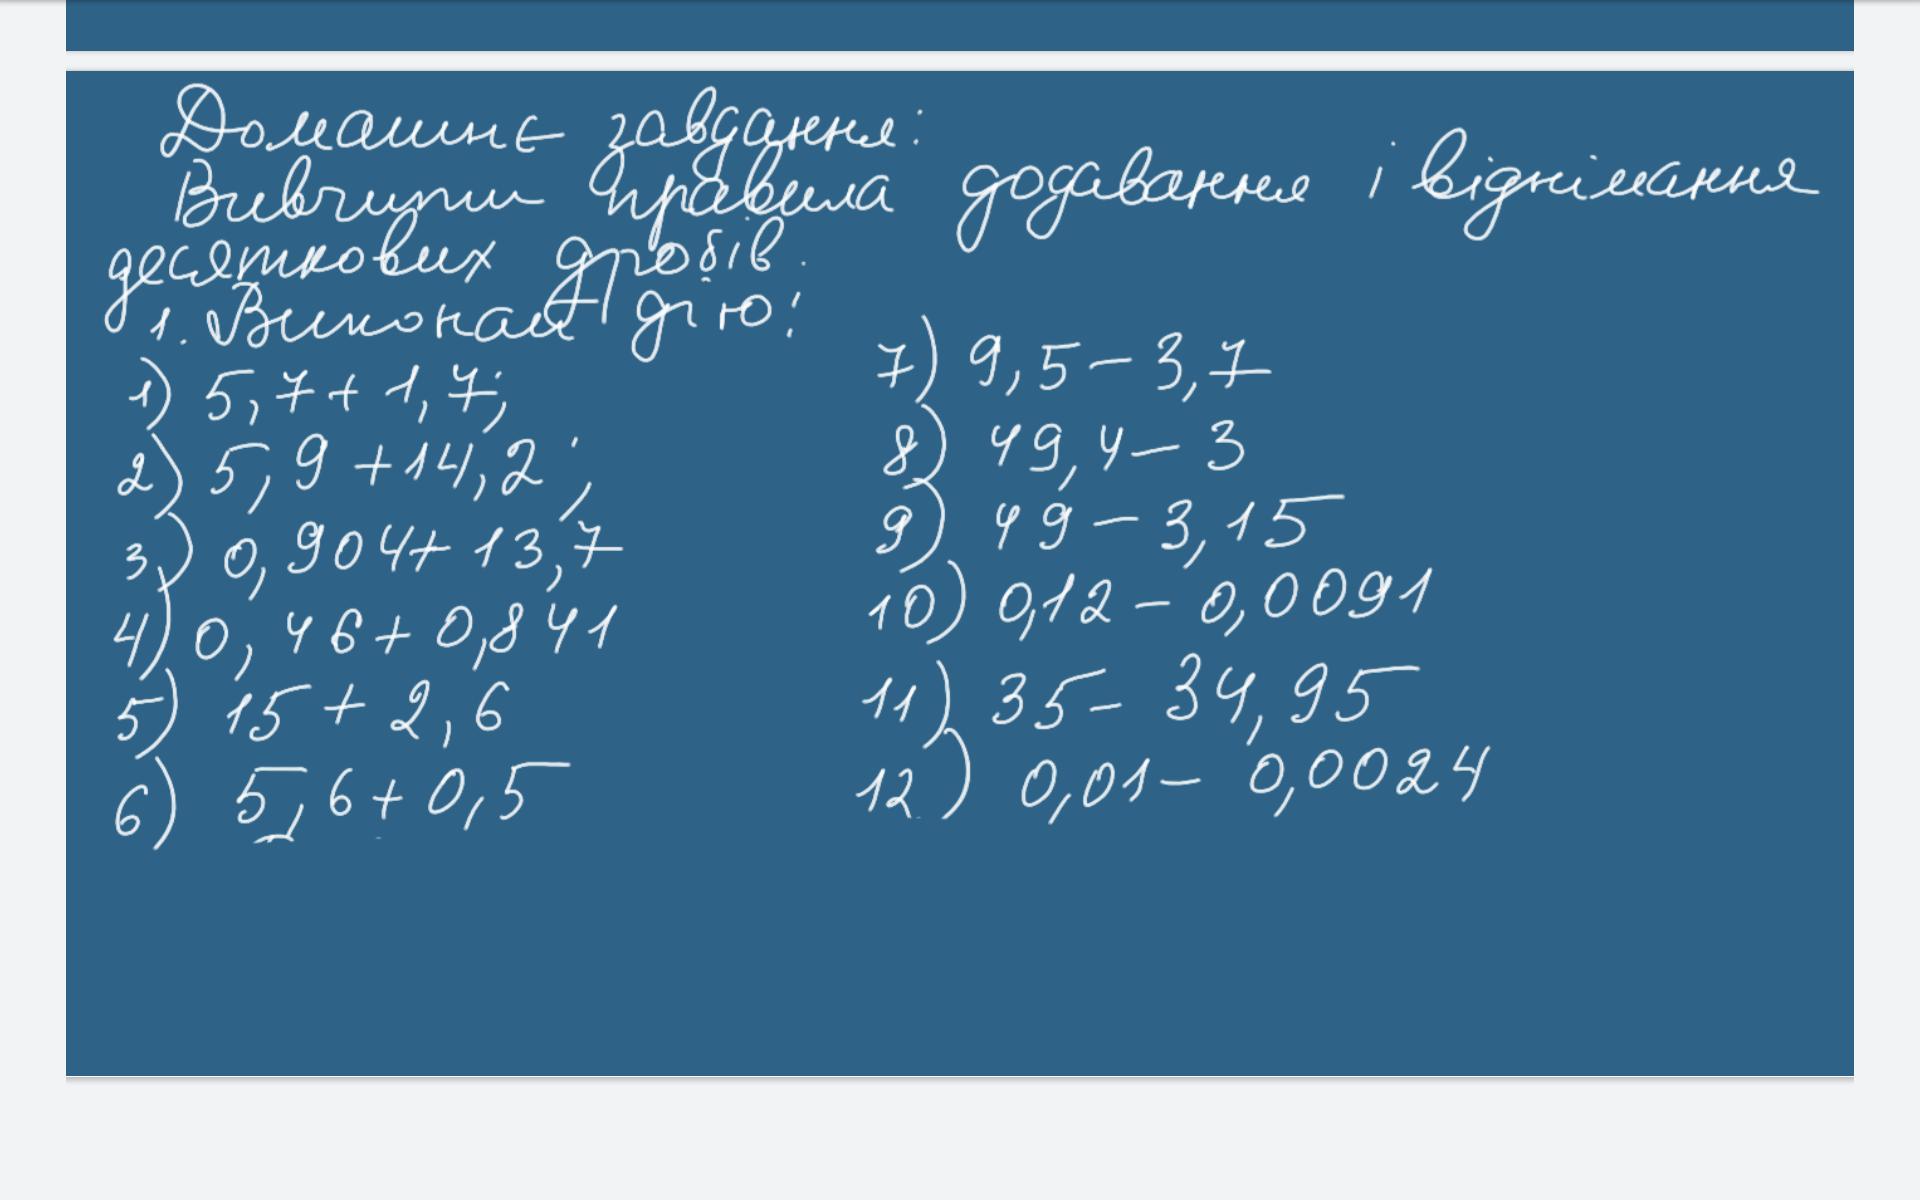 Домашнє завдання:
Вивчити правила додавання і віднімання
десяткових дробів.
1. Виконай дію:
1) 5,7+1,7;
2) 5,9+14,2;
3) 0,904+13,7
4) 0,46+0,841
5) 15+2,6
6) 5,6+0,5
7) 9,5-3,7
8) 49,4-3
9) 49-3,15
10) 0,12-0,0091
11) 35-34,95
12) 0,01-0,0024